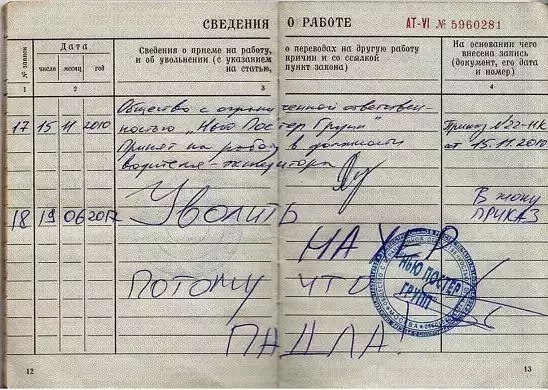 СВЕДЕНИЯ О РАБОТЕ
АТ-VI № 5960281
№ записи
Дата
число месяц год
Сведения о приеме на работу, о переводах на другую работу
и об увольнении (с указанием причин и со ссылкой
на статью, пункт закона)
На основании чего
внесена запись
(документ, его дата
и номер)
1 2 3 4
Общество с ограниченной ответствен-
ностью „Нью Постер Групп"
17 15 11 2010
Принят на работу в должности
водителя-экспедитора
Приказ №22-НК
от 15.11.2010
18 19 06 2012 Уволить
НАХЕР
ПОТОМУ ЧТО
ПАДЛА!
В жопу
ПРИКАЗ
НЬЮ ПОСТЕР
ГРУПП
МОСКВА
12
13